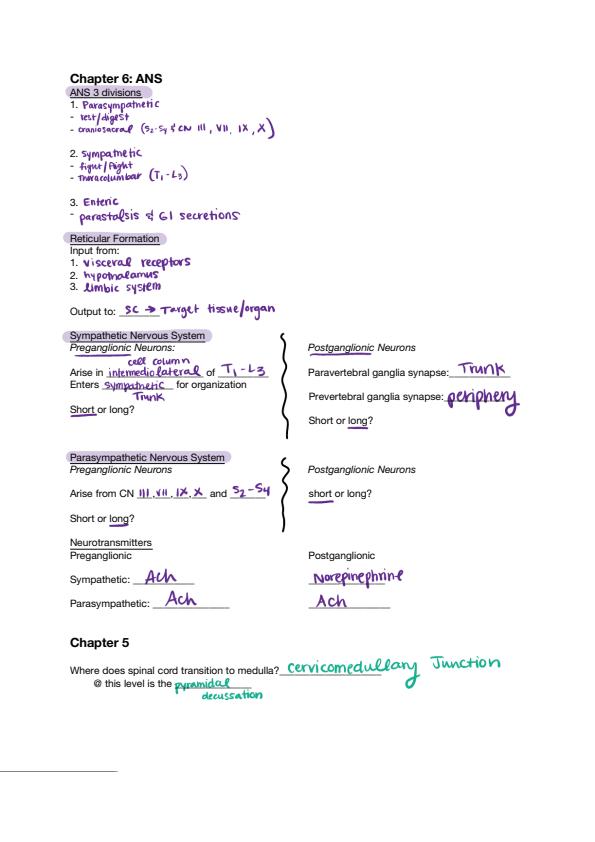 Chapter 6: ANS
ANS 3 divisions
1. Parasympathetic
- rest/digest
- craniosacral (S2-S4 & CN III, VII, IX, X)
2. Sympathetic
- fight/flight
- Thoracolumbar (T1-L3)
3. Enteric
- parastalsis & GI secretions
Reticular Formation
Input from:
1. visceral receptors
2. hypothalamus
3. limbic system
Output to: SC → Target tissue/organ
Sympathetic Nervous System
Preganglionic Neurons:
cell column
Arise in intermediolateral of T1-L3
Enters sympathetic for organization
Trunk
Short or long?
Postganglionic Neurons
Paravertebral ganglia synapse: Trunk
Prevertebral ganglia synapse: periphery
Short or long?
Parasympathetic Nervous System
Preganglionic Neurons
Arise from CN III, VII, IX, X and S2-S4
Short or long?
Postganglionic Neurons
short or long?
Neurotransmitters
Preganglionic Postganglionic
Sympathetic: Ach Norepinephrine
Parasympathetic: Ach Ach
Chapter 5
Where does spinal cord transition to medulla? cervicomedullary Junction
@ this level is the pyramidal
decussation